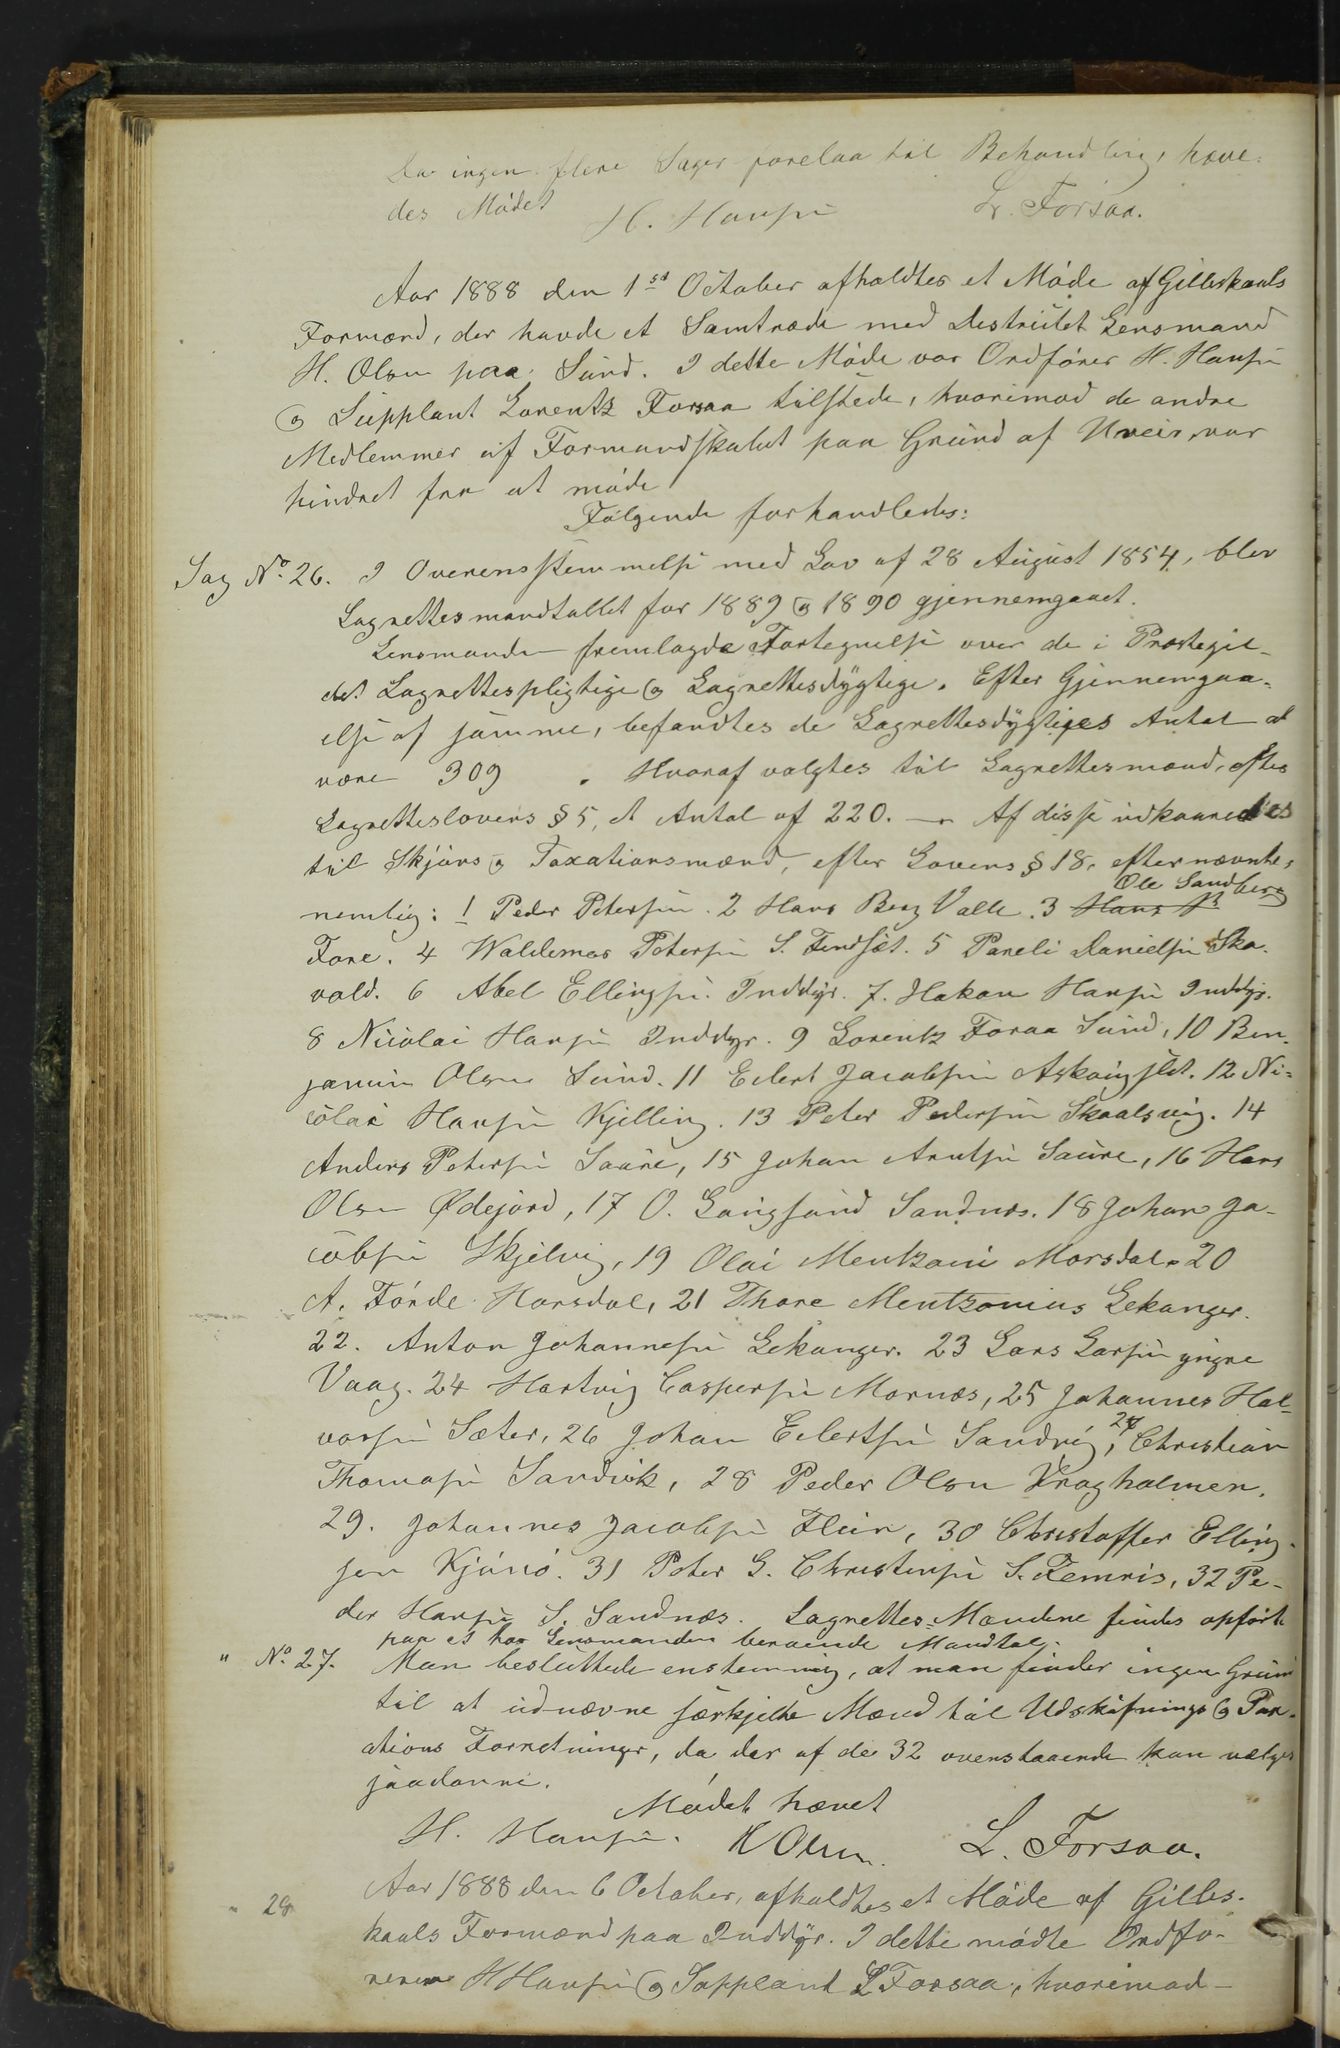 Da ingen flere Sager forelaa til Behandling, hæve-
des Mødet H. Hansen L. Forsaa.
Aar 1888 den 1st October afholdtes et Møde af Gilleskaals
Formænd, der havde et Samtræde med Destriktet Lensmand
H. Olsen paa Sund. I dette Møde var Ordfører H. Hansen
og Supplant Lorentz Forsaa tilstede, hvorimod de andre
Medlemmer af Formandskabet paa Grund af Uveir, var
hindret fra at møde
Følgende forhandledes:
Sag No. 26. I Overensstemmelse med Lov af 28 August 1854, blev
Lagrettesmandtallet for 1889 og 1890 gjennemgaaet.
Lensmanden fremlagde Fortegnelse over de i Præstegjel-
det Lagrettespligtige og Lagrettesdygtige. Efter Gjennemgaa-
else af samme, befandtes de Lagrettesdygtiges Antal at
være 309. Hvoraf valgtes til Lagrettesmænd, efter
Lagretteslovens § 5, et Antal af 220. — Af disse udkaaredes
til Skjøns og Taxationsmænd, efter Lovens § 18, efternævnte,
Ole Sandberg
nemlig: 1 Peder Petersen. 2 Hans Berg Valle. 3 Hans P
Fore. 4 Waldemar Petersen S. Findset. 5 Pareli Danielsen Ska-
vold. 6 Abel Ellingsen Inddyr. 7. Hakon Hansen Inddyr.
8 Nicolai Hansen Inddyr. 9 Lorentz Foraa Sund, 10 Ben-
jamin Olsen Sund. 11 Edert Jacobsen Askougslet. 12 Ni-
colai Hansen Kjelling. 13 Peter Pedersen Skaalsvig. 14
Anders Petersen Saure, 15 Johan Arntsen Saure, 16 Hans
Olsen Ødejord, 17 O. Langsund Sandnes. 18 Johan Ja-
cobsen Skjelvig, 19 Olai Mentzoni Morsdal. 20
A. Førde Horsdal, 21 Thore Mentzonius Lekanger.
22. Anton Johannesen Lekanger. 23 Lars Larsen yngre
Vaag. 24 Hartvig Caspersen Mornæs, 25 Johannes Hal-
vorsen Sæter, 26 Johan Eilertsen Sandvig, 27 Christian
Thomasen Sandvik, 28 Peder Olsen Kragholmen.
29. Johannes Jacobsen Flein, 30 Christoffer Elling-
sen Kjønø. 31 Peter G. Christensen S. Femris, 32 Pe-
der Hansen S. Sandnæs. Lagrettes-Mændene findes opført
paa et hos Lensmanden beroende Mandtal.
" No. 27. Man besluttede enstemmig, at man finder ingen Grund
til at udnævne særkjelte Mænd til Udskiftnings og Par-
ations Forretninger, da der af de 32 ovenstaaende kan vælges
saadanne.
Mødet hævet
H. Hansen. H Olsen. L. Forsaa.
Aar 1888 den 6 October, afholdtes et Møde af Gilles-
" 28
kaals Formænd paa Inddyr. I dette mødte Ordfø-
reren H Hansen og Suppland L Forsaa, hvorimod